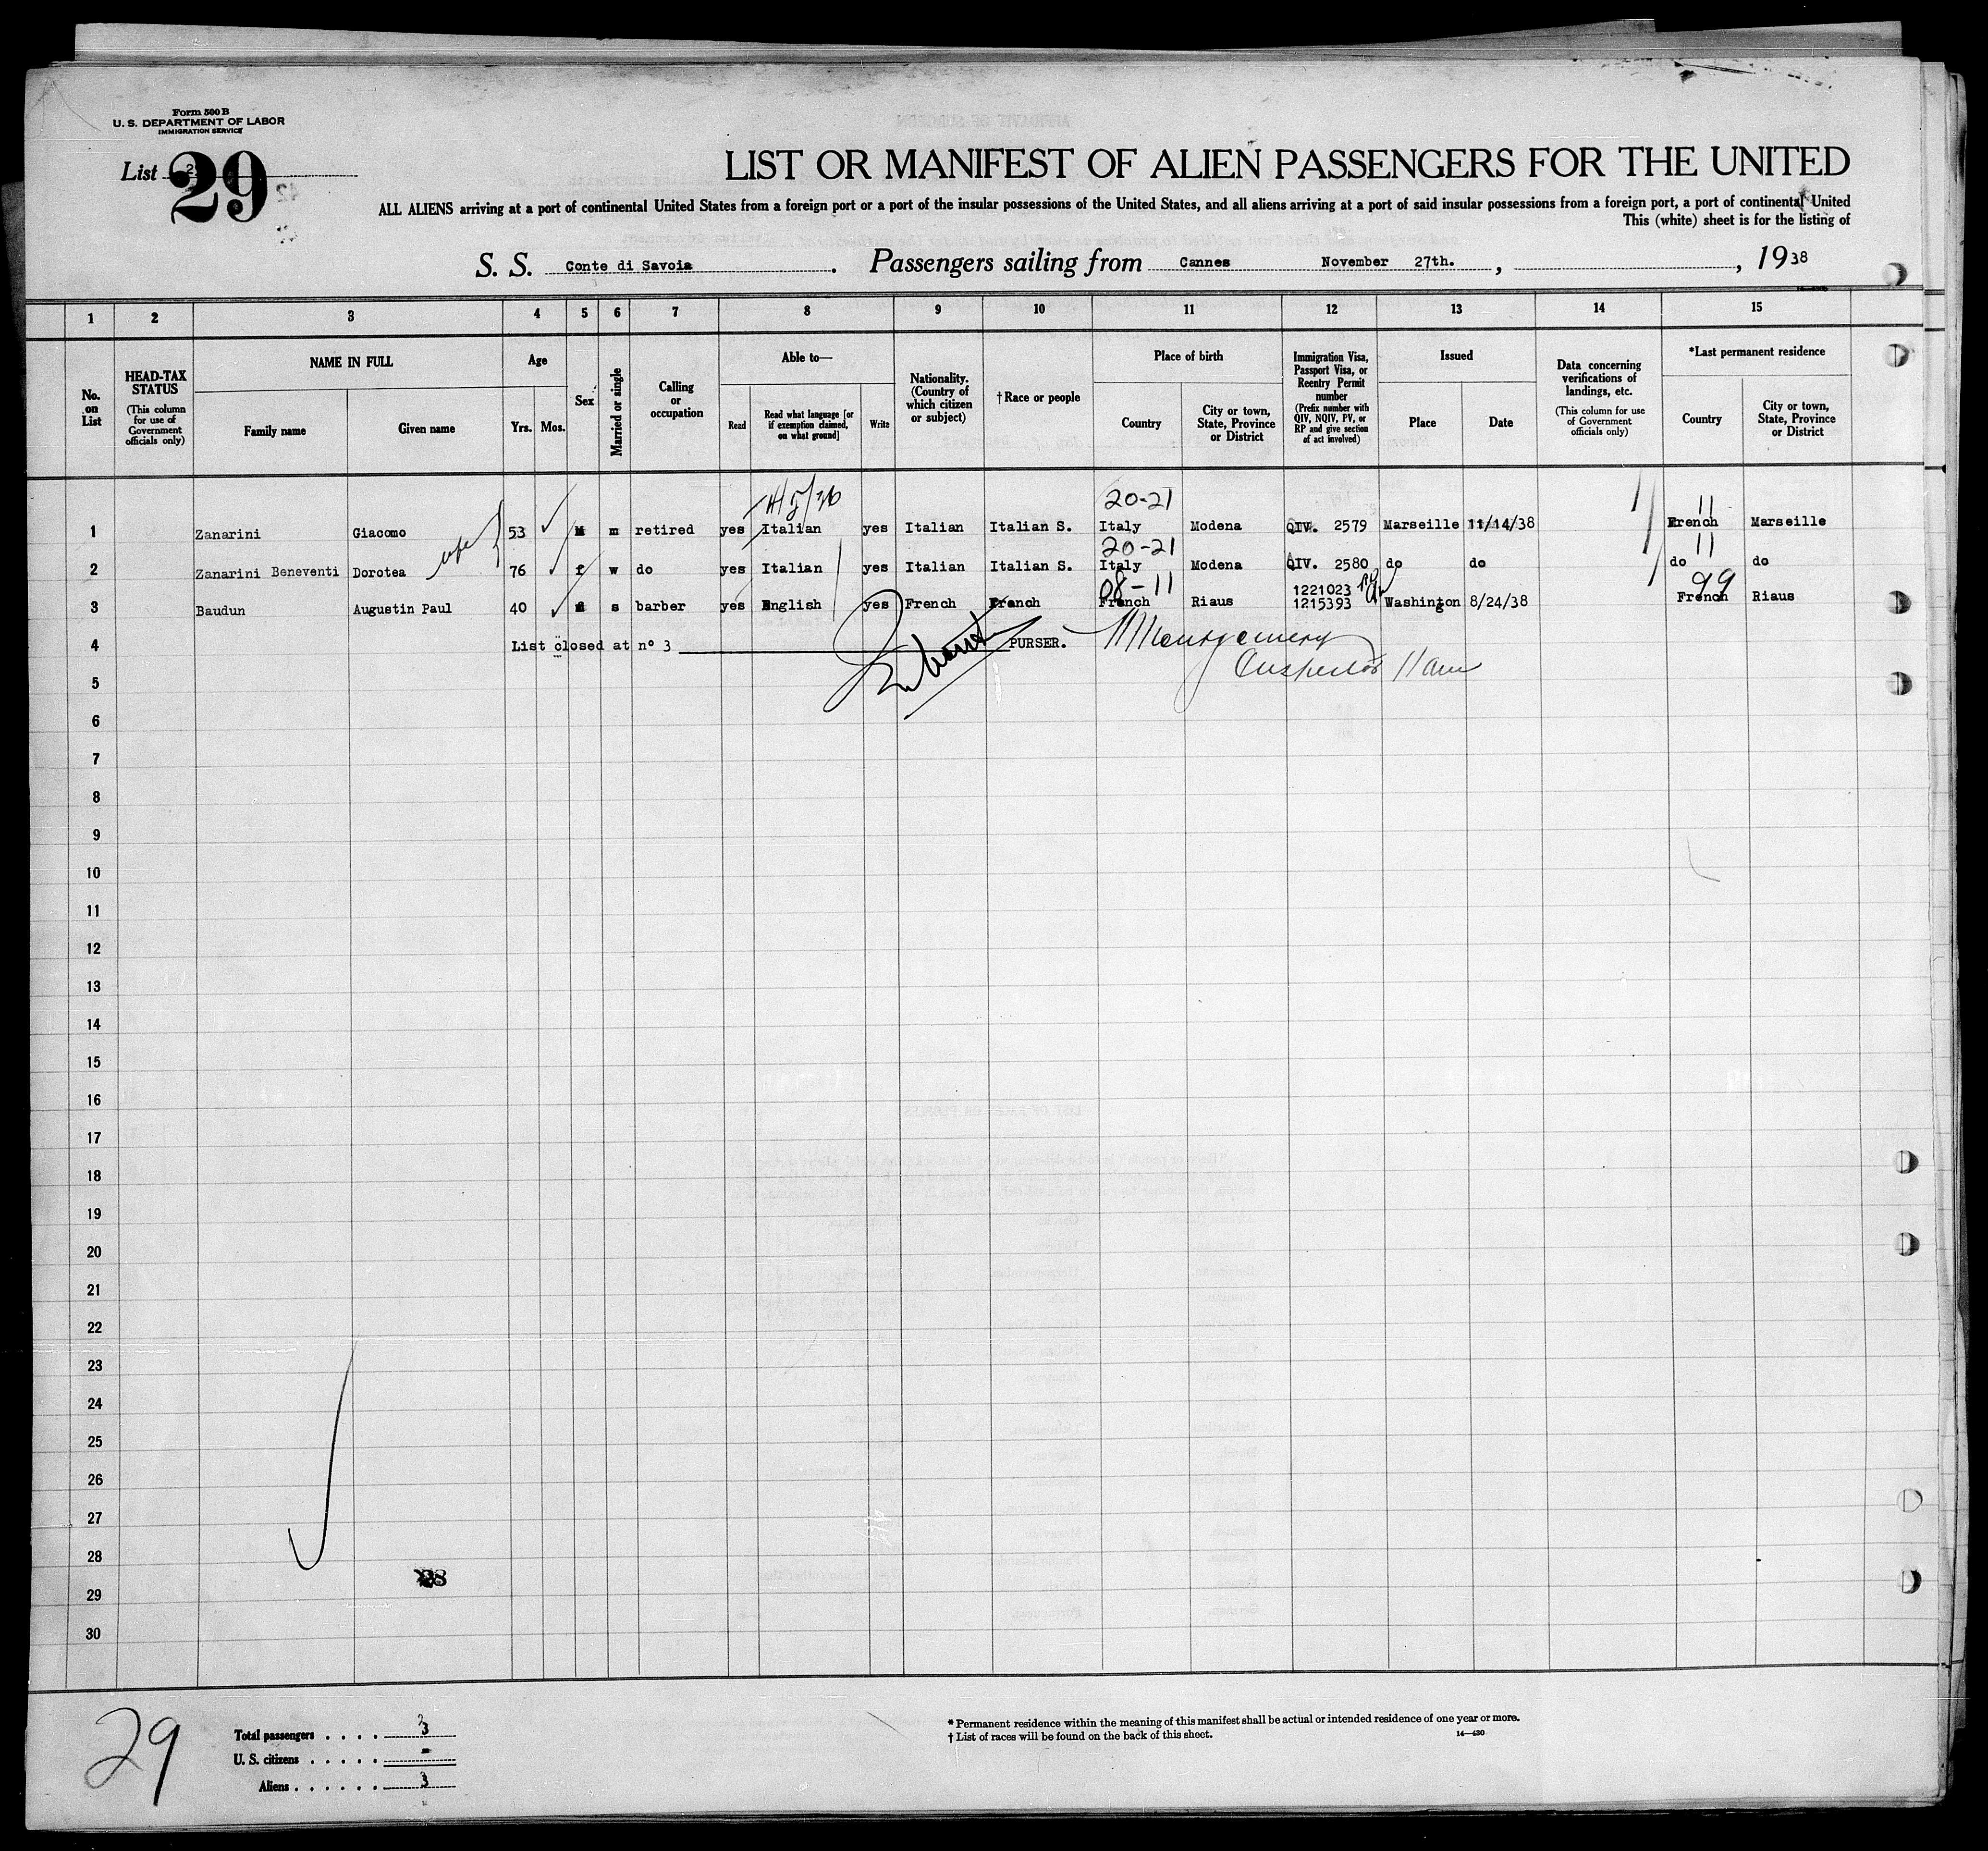 Form 500 B
U. S. DEPARTMENT OF LABOR
IMMIGRATION SERVICE
List 29
LIST OR MANIFEST OF ALIEN PASSENGERS FOR THE UNITED
ALL ALIENS arriving at a port of continental United States from a foreign port or a port of the insular possessions of the United States, and all aliens arriving at a port of said insular possessions from a foreign port, a port of continental United
This (white) sheet is for the listing of
S. S. Conte di Savoia. Passengers sailing from Cannes November 27th. , , 1938
1 2 3 4 5 6 7 8 9 10 11 12 13 14 15
No. on List
HEAD-TAX STATUS
(This column for use of Government officials only)
NAME IN FULL
Family name
Given name
Age
Yrs. Mos.
Sex
Married or single
Calling or occupation
Able to—
Read
Read what language [or if exemption claimed, on what ground]
Write
Nationality. (Country of which citizen or subject)
† Race or people
Place of birth
Country
City or town, State, Province or District
Immigration Visa, Passport Visa, or Reentry Permit number
(Prefix number with QIV, NQIV, PV, or RP and give section of act involved)
Issued
Place
Date
Data concerning verifications of landings, etc.
(This column for use of Government officials only)
*Last permanent residence
Country
City or town, State, Province or District
20-21 11
1 Zanarini Giacomo 53 m retired yes Italian yes Italian Italian S. Italy Modena QIV. 2579 Marseille 11/14/38 French Marseille
20-21 11
2 Zanarini Beneventi Dorotea 76 f w do yes Italian yes Italian Italian S. Italy Modena QIV. 2580 do do do do
08-11 1221023 99
3 Baudun Augustin Paul 40 s barber yes English yes French French French Riaus 1215393 Washington 8/24/38 French Riaus
4 List closed at n° 3 PURSER. Montgomery
Inspector
5
6
7
8
9
10
11
12
13
14
15
16
17
18
19
20
21
22
23
24
25
26
27
28
28
29
30
29
Total passengers . . . . 3
U. S. citizens . . . . . -
Aliens . . . . . . 3
* Permanent residence within the meaning of this manifest shall be actual or intended residence of one year or more.
† List of races will be found on the back of this sheet.
14—430